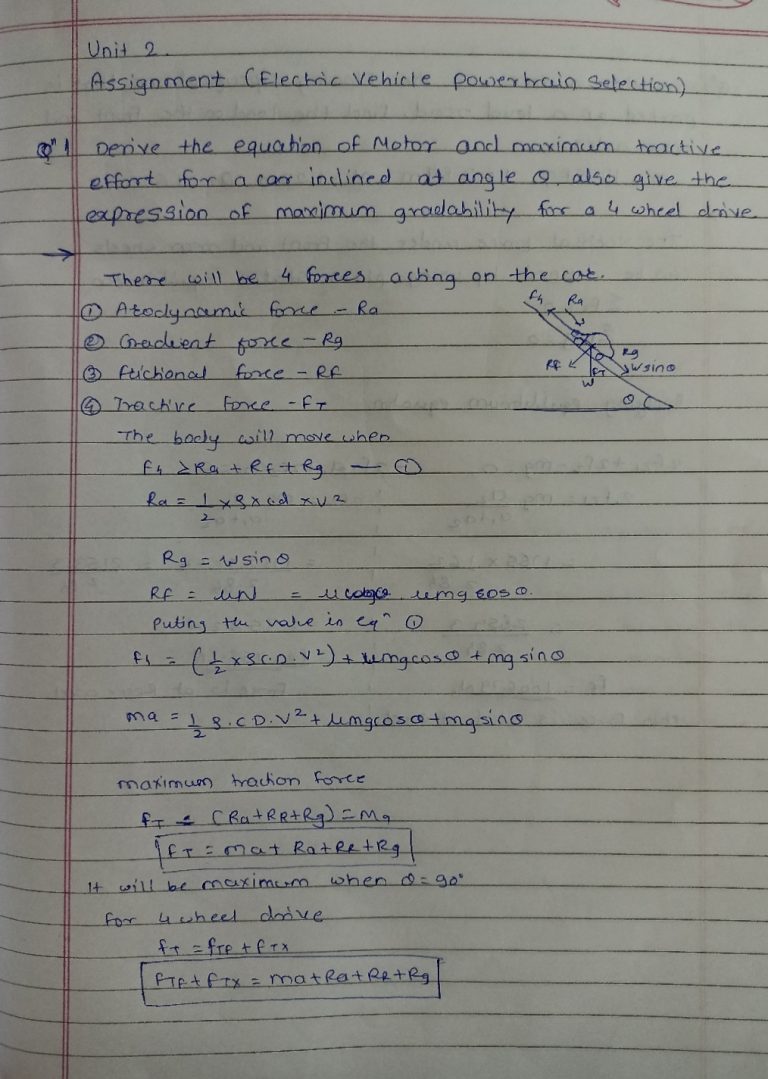 Unit 2.
Assignment (Electric Vehicle Powertrain Selection)
Qn 1 Derive the equation of Motor and maximum tractive
effort for a car inclined at angle θ. also give the
expression of maximum gradability for a 4 wheel drive.
→
There will be 4 forces acting on the car.
① Aerodynamic force - Ra
② Gradient force - Rg
③ frictional force - RF
④ Tractive Force - FT
Ra
Rg
wsinθ
RF
FT
W
θ
The body will move when
Ft ≥ Ra + Rf + Rg — ①
Ra = 1/2 x ρ x cd x v2
Rg = wsinθ
RF = μN = μmg cosθ.
Puting the value in eqn ①
ft = (1/2 x ρ C.D. V2) + μmgcosθ + mg sinθ
ma = 1/2 ρ. CD. V2 + μmgcosθ + mgsinθ
maximum traction force
fT = (Ra+RR+Rg) = Ma
fT = ma + Ra+RR+Rg
It will be maximum when θ=90°
for 4 wheel drive
fT = fTF + fTX
FTF + FTX = ma+Ra+RR+Rg